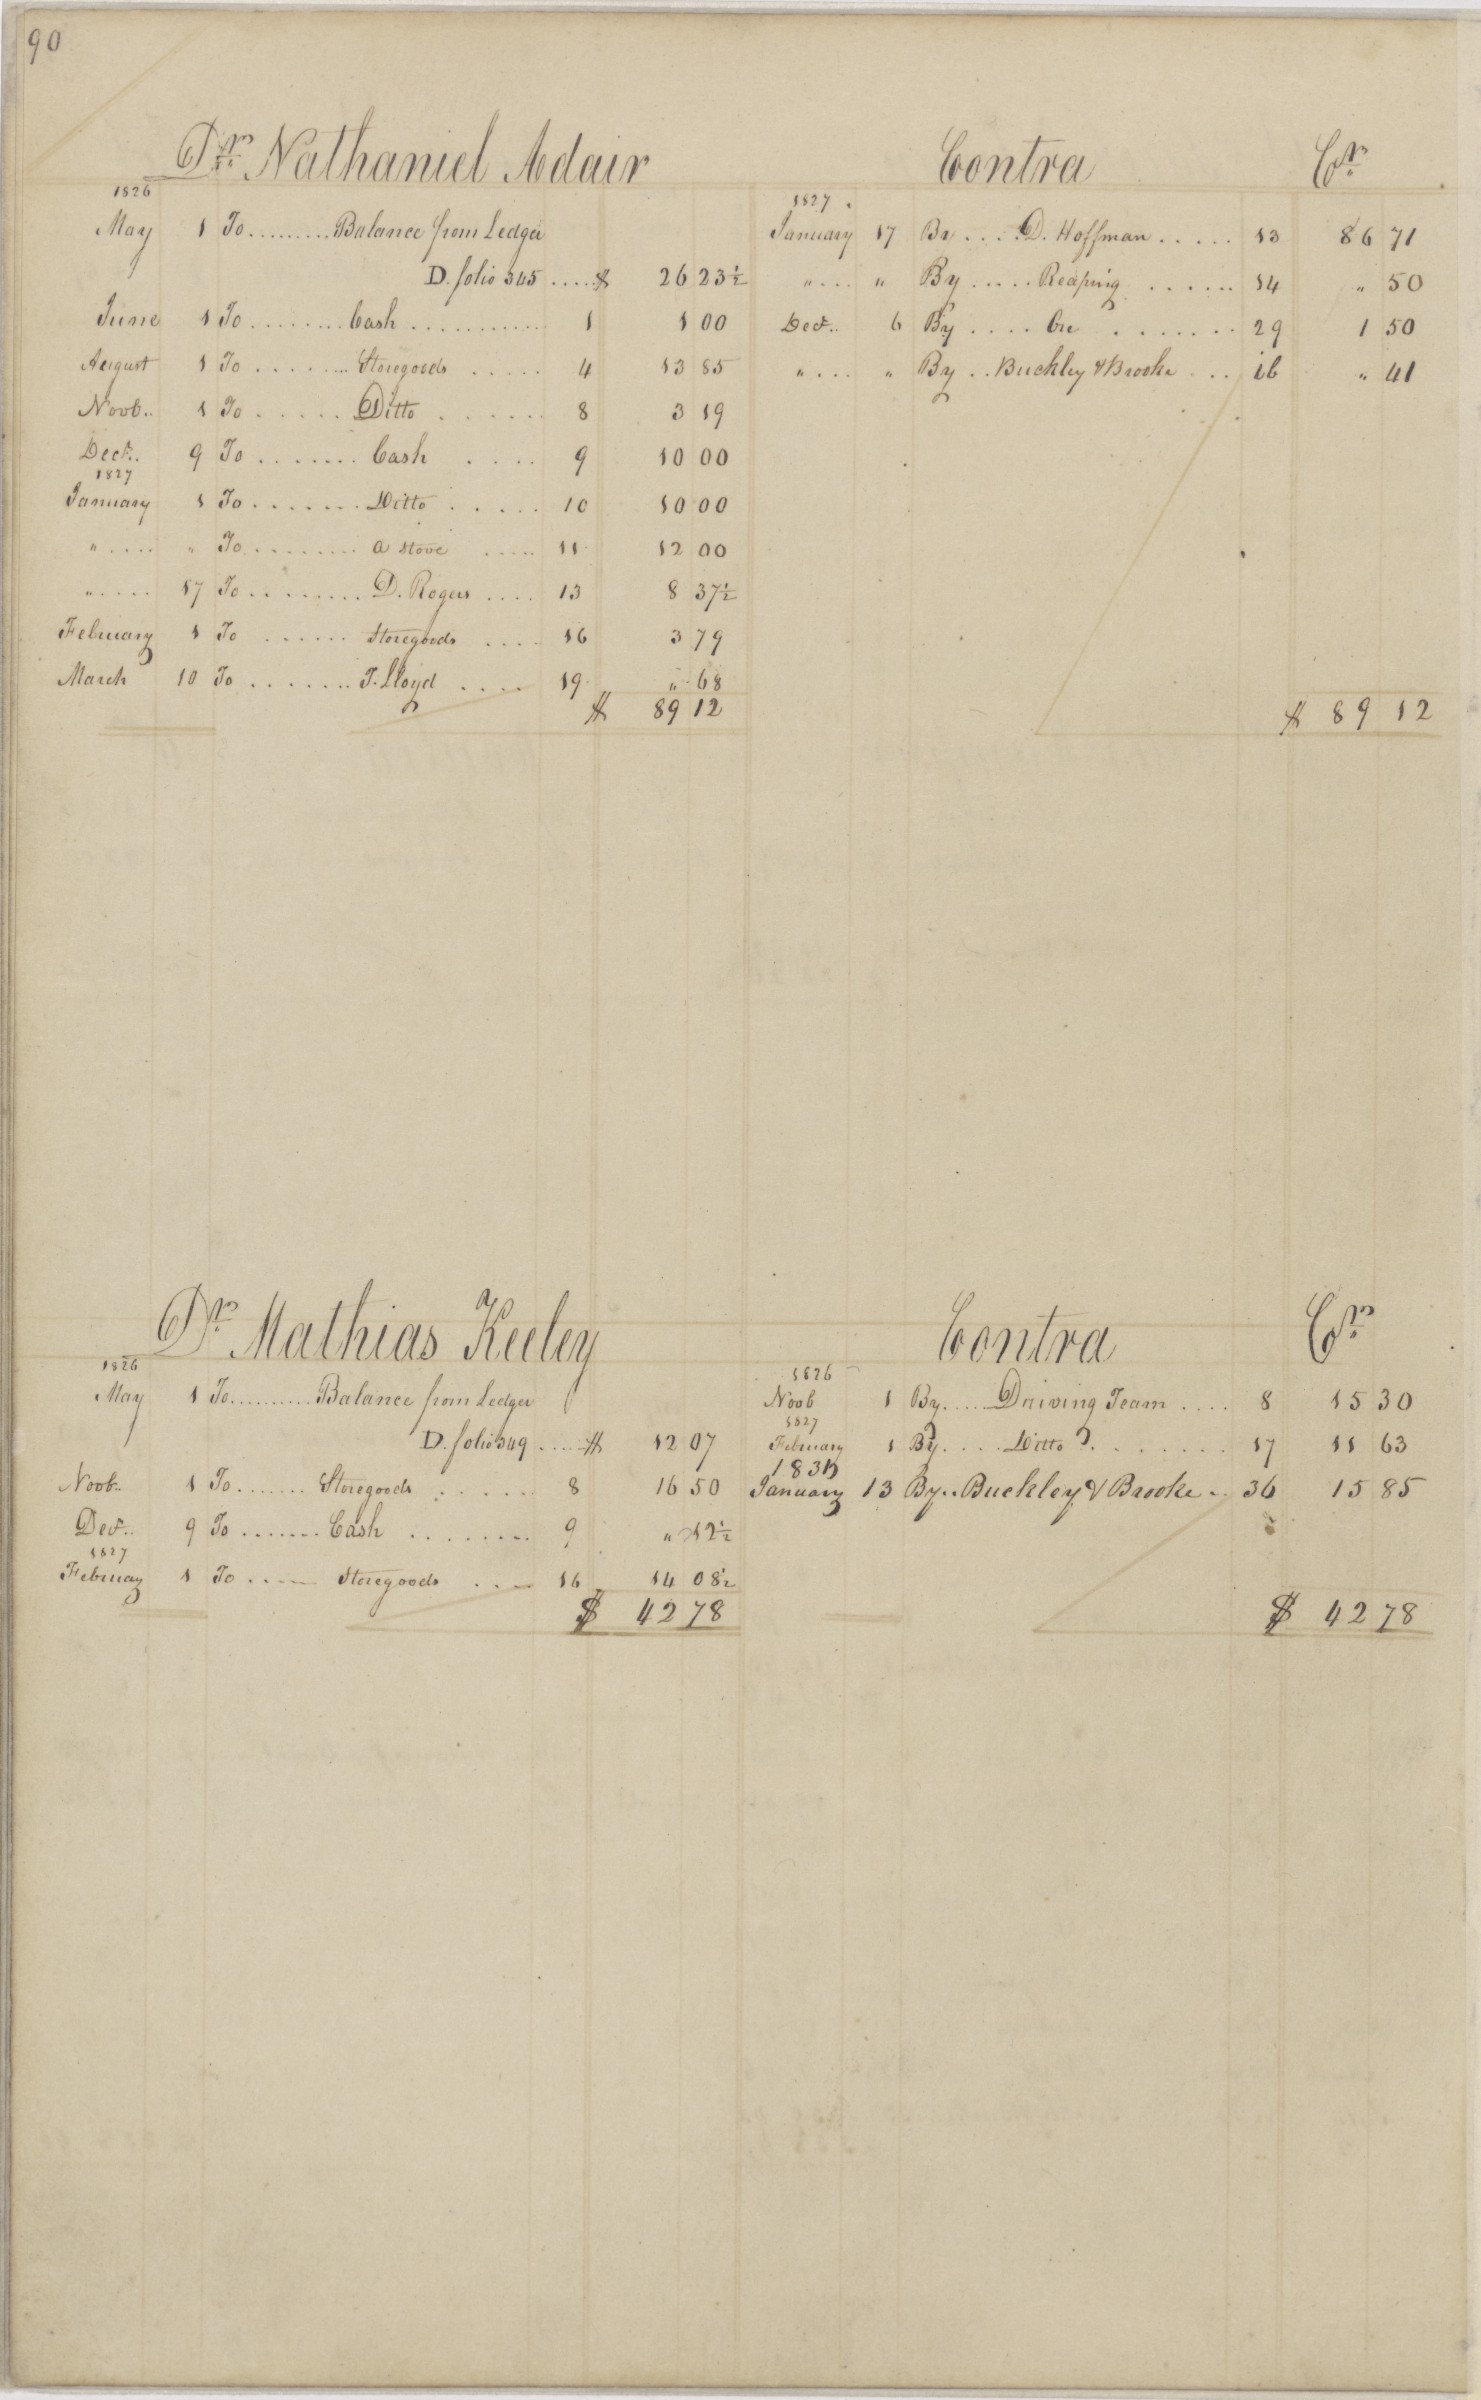 90
Dr. Nathaniel Adair
1826
May 1 To ......... Balance from Ledger
D. folio 345 ..... $ 26 23½
June 1 To ........ Cash ........... 1 1 00
August 1 To ........ Storegoods ..... 4 13 85
Novb.. 1 To ...... Ditto ....... 8 3 19
Decr.. 9 To ....... Cash .... 9 10 00
1827
January 1 To ....... Ditto ..... 10 10 00
" .... " To ......... a stove ..... 11 12 00
" ..... 17 To ......... D. Rogers .... 13 8 37½
February 1 To ...... Storegoods .... 16 3 79
March 10 To ........ T. Lloyd .... 19 " 68
$ 89 12
Contra Cr.
1827
January 17 By .... D. Hoffman ..... 13 86 71
" ... " By ..... Reaping ...... 14 " 50
Decr.. 6 By .... ....... 29 1 50
" .... " By .. Buckley & Brooke ... 16 " 41
$ 89 12
Dr. Mathias Keeley
1826
May 1 To .......... Balance from Ledger
D. folio 349 ..... $ 12 07
Novb.. 1 To ....... Storegoods ...... 8 16 50
Decr.. 9 To ....... Cash ........ 9 " 12½
1827
February 1 To ..... Storegoods .... 16 14 08½
$ 42 78
Contra Cr.
1826
Novb 1 By ..... Driving Team .... 8 15 30
1827
February 1 By .... Ditto ........ 17 11 63
January 13 By .. Buckley & Brooke .. 36 15 85
$ 42 78